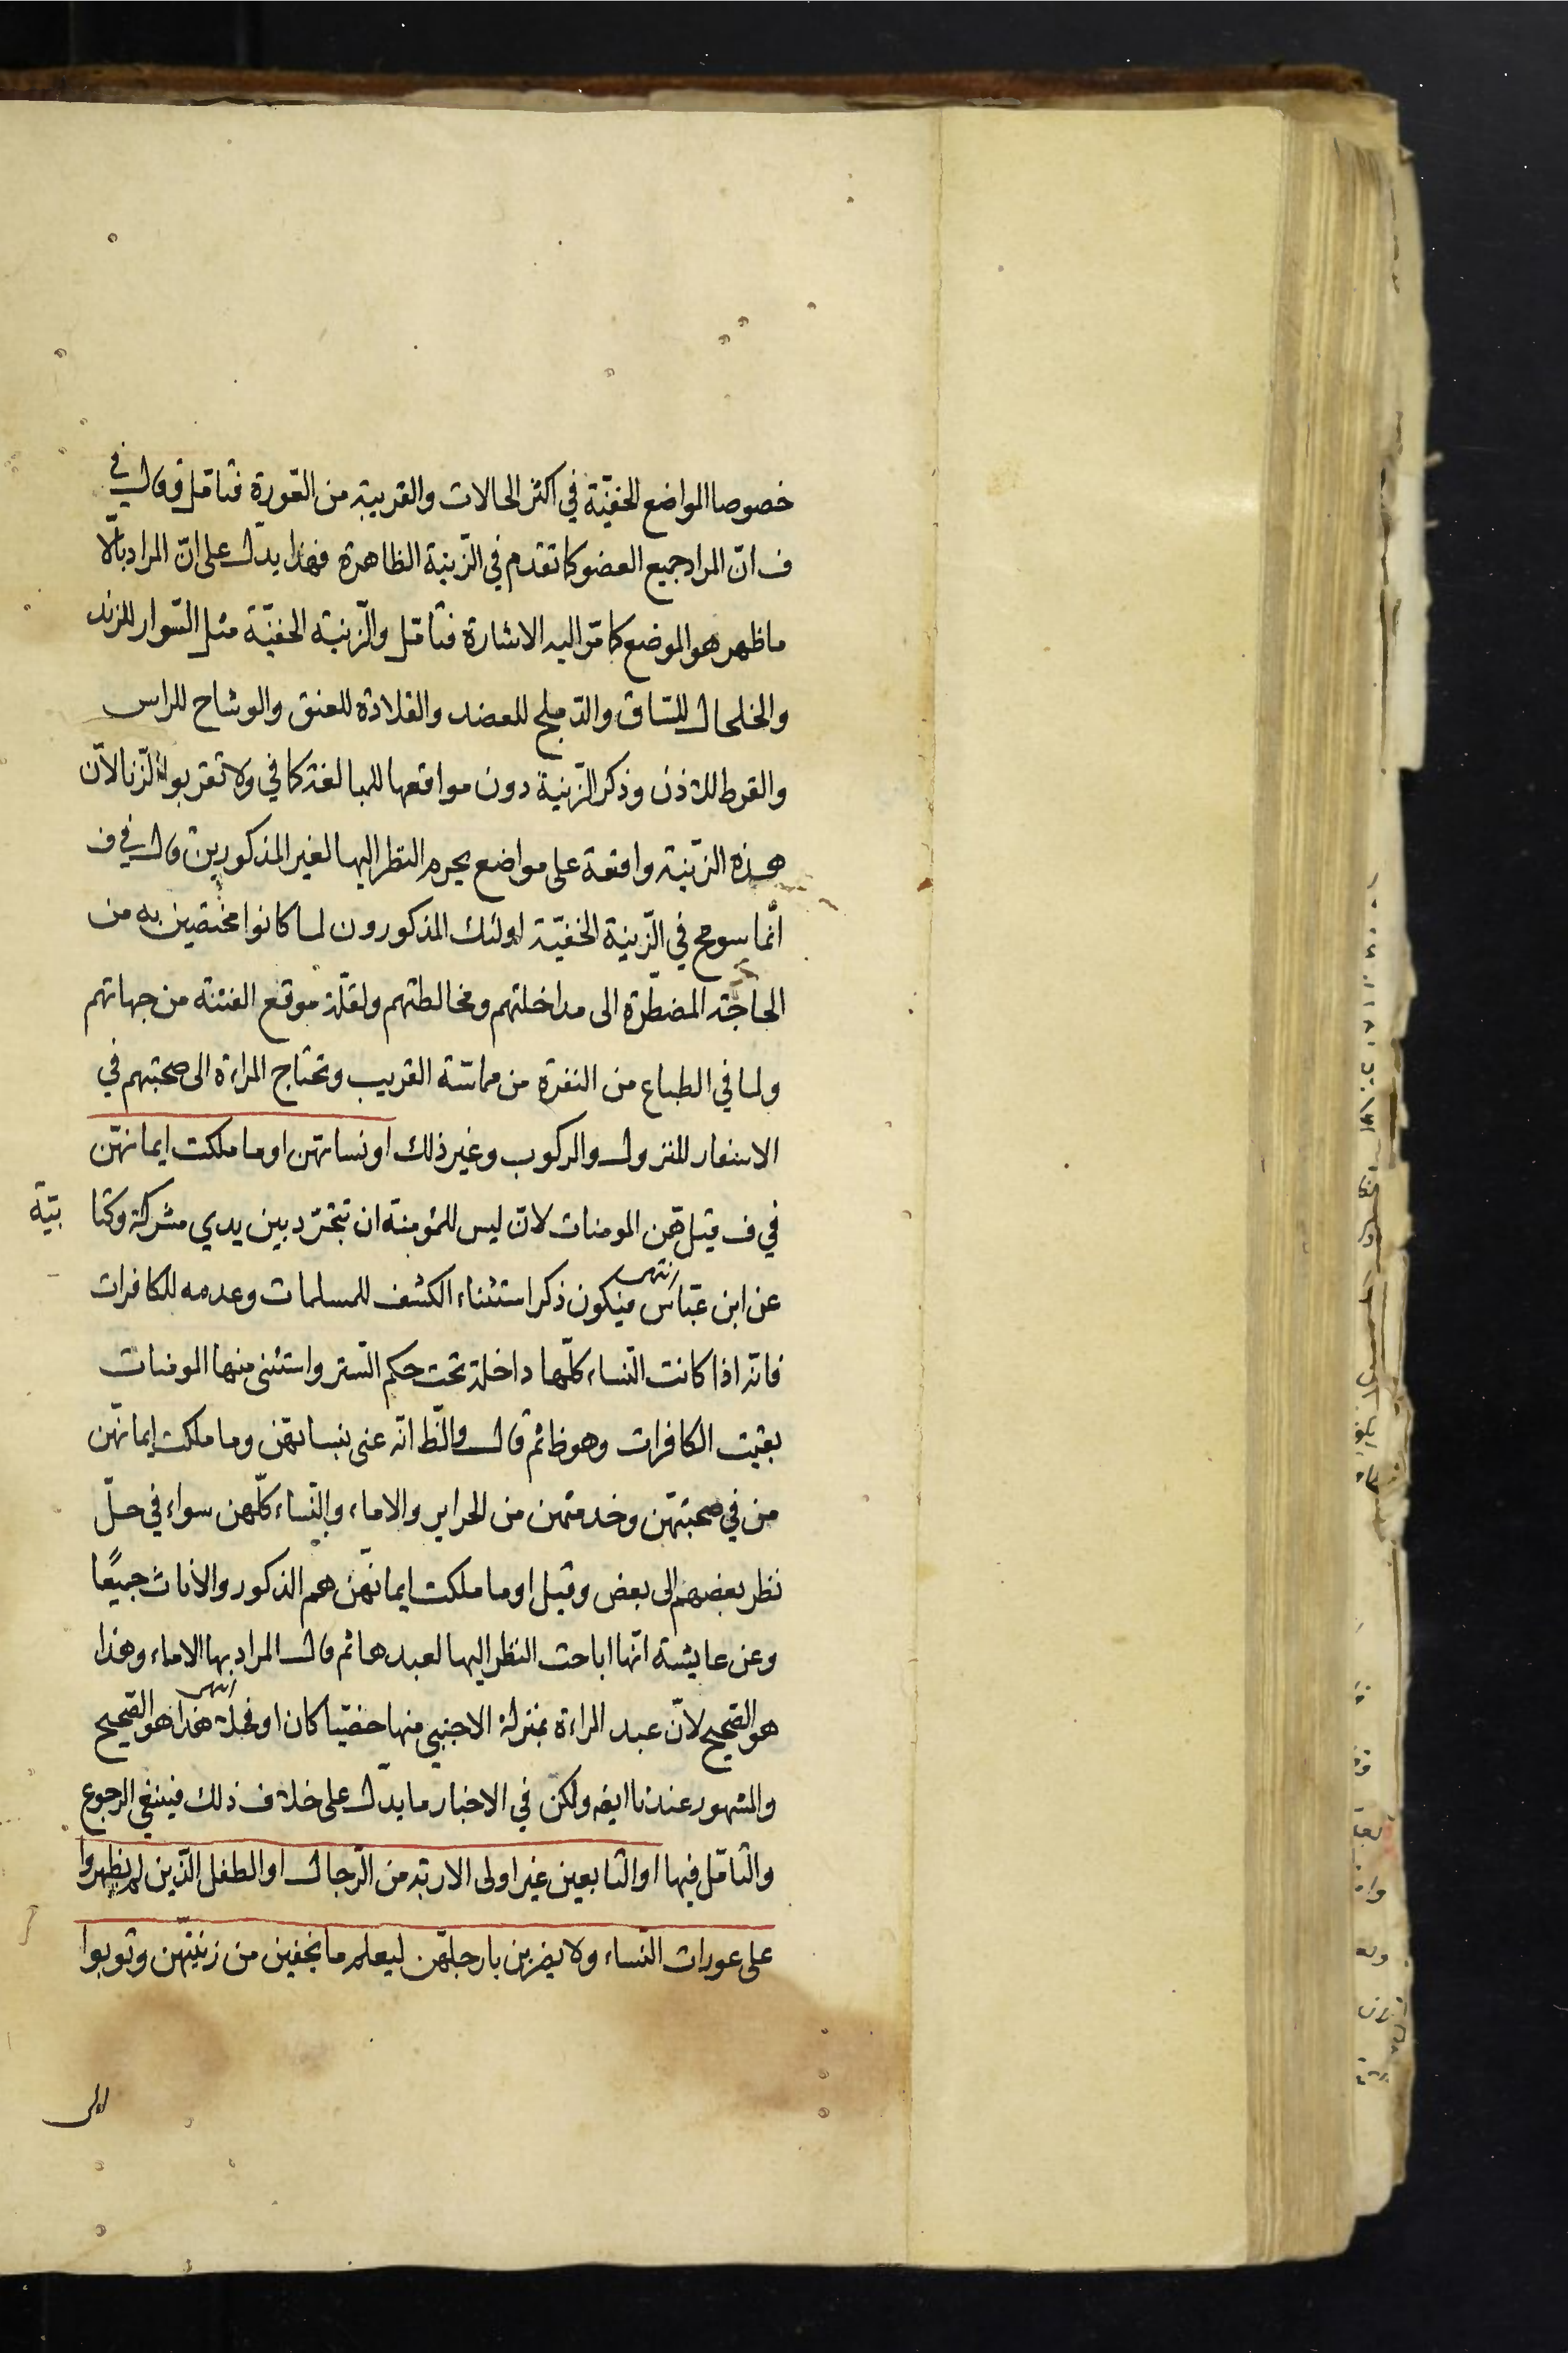 خصوصا المواضع الخفيّة في اكثر الحالات والقريبة من العورة فتامّل وقال في
ف انّ المراد جميع العضو كما تقدم في الزّينة الظاهرة فهذا يدل على انّ المراد بالّا
ما ظهر هو الموضع كما مرّ اليه الاشارة فتامّل والزّينة الخفيّة مثل السّوار للزند
والخلخال للسّاق والدّملج للعضد والقلادة للعنق والوشاح للراس
والقرط للاذن وذكر الزّينة دون مواقعها للمبالغة كما في ولا تقربوا الزّنا لانّ
هذه الزّينة واقعة على مواضع يحرم النظر اليها لغير المذكورين قال في ف
انّما سومح في الزّينة الخفيّة اولئك المذكورون لما كانوا مختصّين به من
الحاجة المضطرّة الى مداخلتهم ومخالطتهم ولقلّة موقع الفتنة من جهاتهم
ولما في الطباع من النفرة من مماسّة القريب وتحتاج المراءة الى صحبتهم في
الاسفار للنزول والركوب وغير ذلك اونسائهن اوما ملكت ايمانهنّ
في ف قيل هنّ المومنات لانّ ليس للمؤمنة ان تتجرّد بين يدي مشركة وكتا بيّة
عن ابن عبّاس انتهى فيكون ذكر استثناء الكشف للمسلمات وعدمه للكافرات
فانّه اذا كانت النّساء كلّها داخلة تحت حكم السّتر واستثنى منها المومنات
بقيت الكافرات وهو ظ ثم قال والظّ انّه عنى بنسائهنّ وما ملكت ايمانهنّ
من في صحبتهنّ وخدمتهن من الحراير والاماء والنّساء كلّهن سواء في حلّ
نظر بعضهم الى بعض وقيل اوما ملكت ايمانهنّ هم الذكور والاناث جميعًا
وعن عايشة انّها اباحت النظر اليها لعبدها ثم قال المراد بها الاماء وهذا
هو الصّحيح لانّ عبد المراءة بمنزلة الاجنبي منها خصيّا كان او فحلا انتهى هذا هو الصّحيح
والمشهور عندنا ايضه ولكن في الاخبار ما يدل على خلاف ذلك فينبغي الرجوع
والتّامّل فيها اوالتّابعين غير اولى الاربة من الرّجال اوالطفل الّذين لم يظهروا
على عورات النّساء ولا يضربن بارجلهنّ ليعلم ما يخفين من زينتهنّ وتوبوا
الى